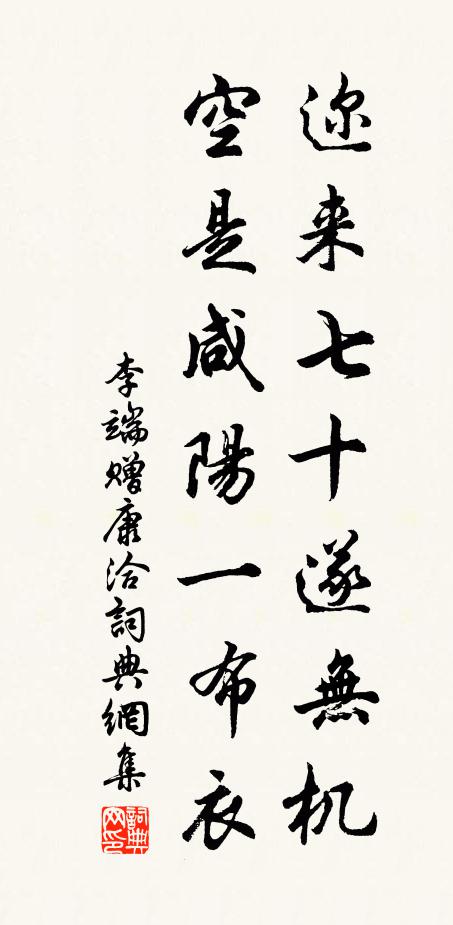 迩来七十遂無机
空是咸陽一布衣
李端贈康洽詞典網集
詞典网印